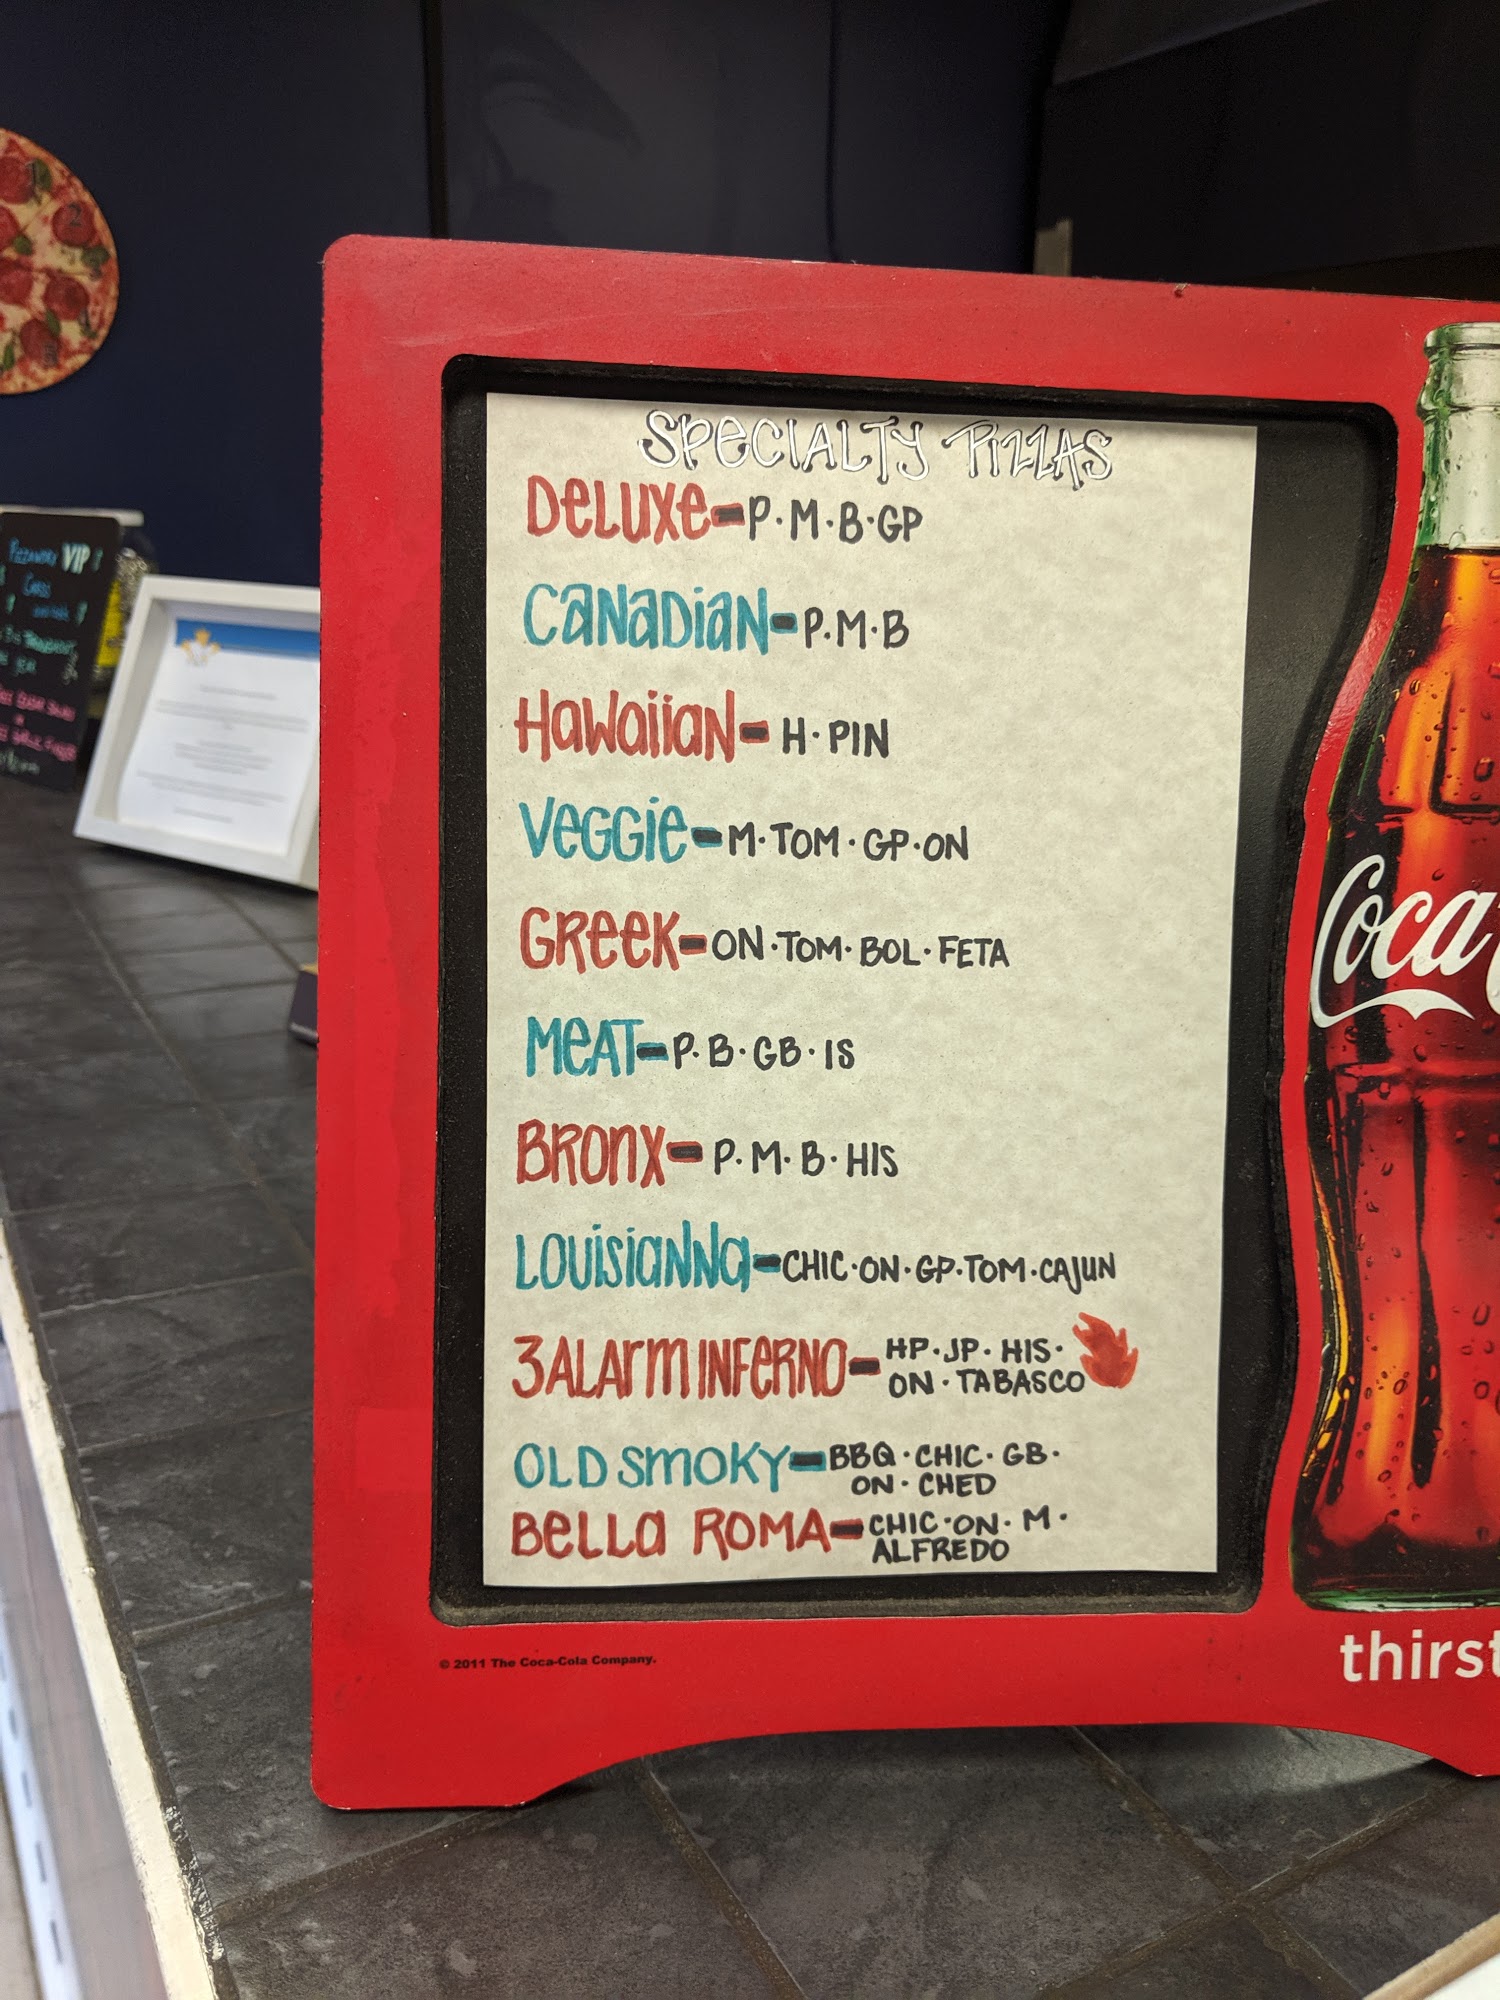 SPECIALTY PIZZAS
DELUXE-P·M·B·GP
CANADIAN-P·M·B
HAWAIIAN-H·PIN
VEGGIE-M·TOM·GP·ON
GREEK-ON·TOM·BOL·FETA
MEAT-P·B·GB·IS
BRONX-P·M·B·HIS
LOUISIANNA-CHIC·ON·GP·TOM·CAJUN
3 ALARM INFERNO-HP·JP·HIS·
ON·TABASCO
OLD SMOKY-BBQ·CHIC·GB·
ON·CHED
BELLA ROMA-CHIC·ON·M·
ALFREDO
© 2011 The Coca-Cola Company.
Coca
thirst
VIP